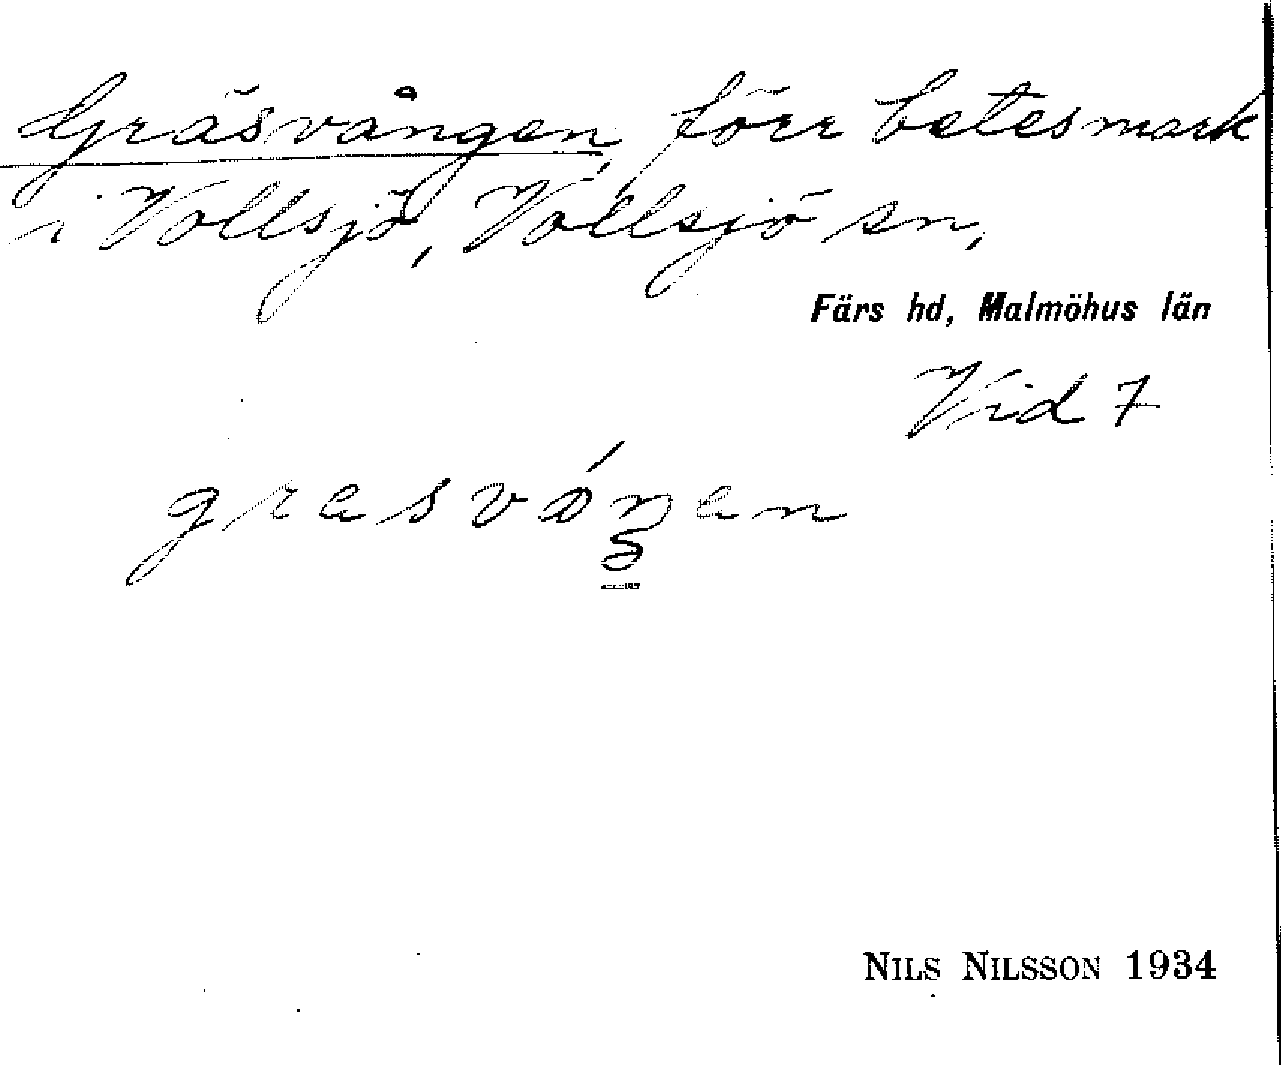 Gräsvången, förr betesmark
i Vollsjö, Vollsjö sn,
Färs hd, Malmöhus län
Vid 7
NILS NILSSON 1934